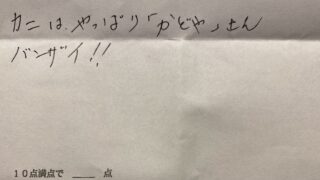 カニは、やっぱり「かどや」さん
バンザイ!!
10点満点で ____ 点